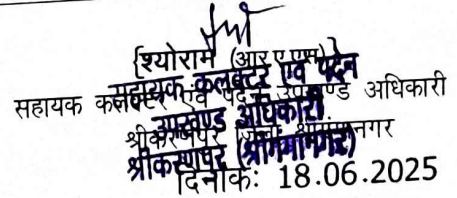 {श्योराम (आर ए एस)}
सहायक कलक्टर एवं पदेन उपखण्ड अधिकारी
श्रीकरणपुर जिला श्रीगंगानगर
सहायक कलक्टर एवं पदेन
उपखण्ड अधिकारी
श्रीकरणपुर (श्रीगंगानगर)
दिनांक: 18.06.2025